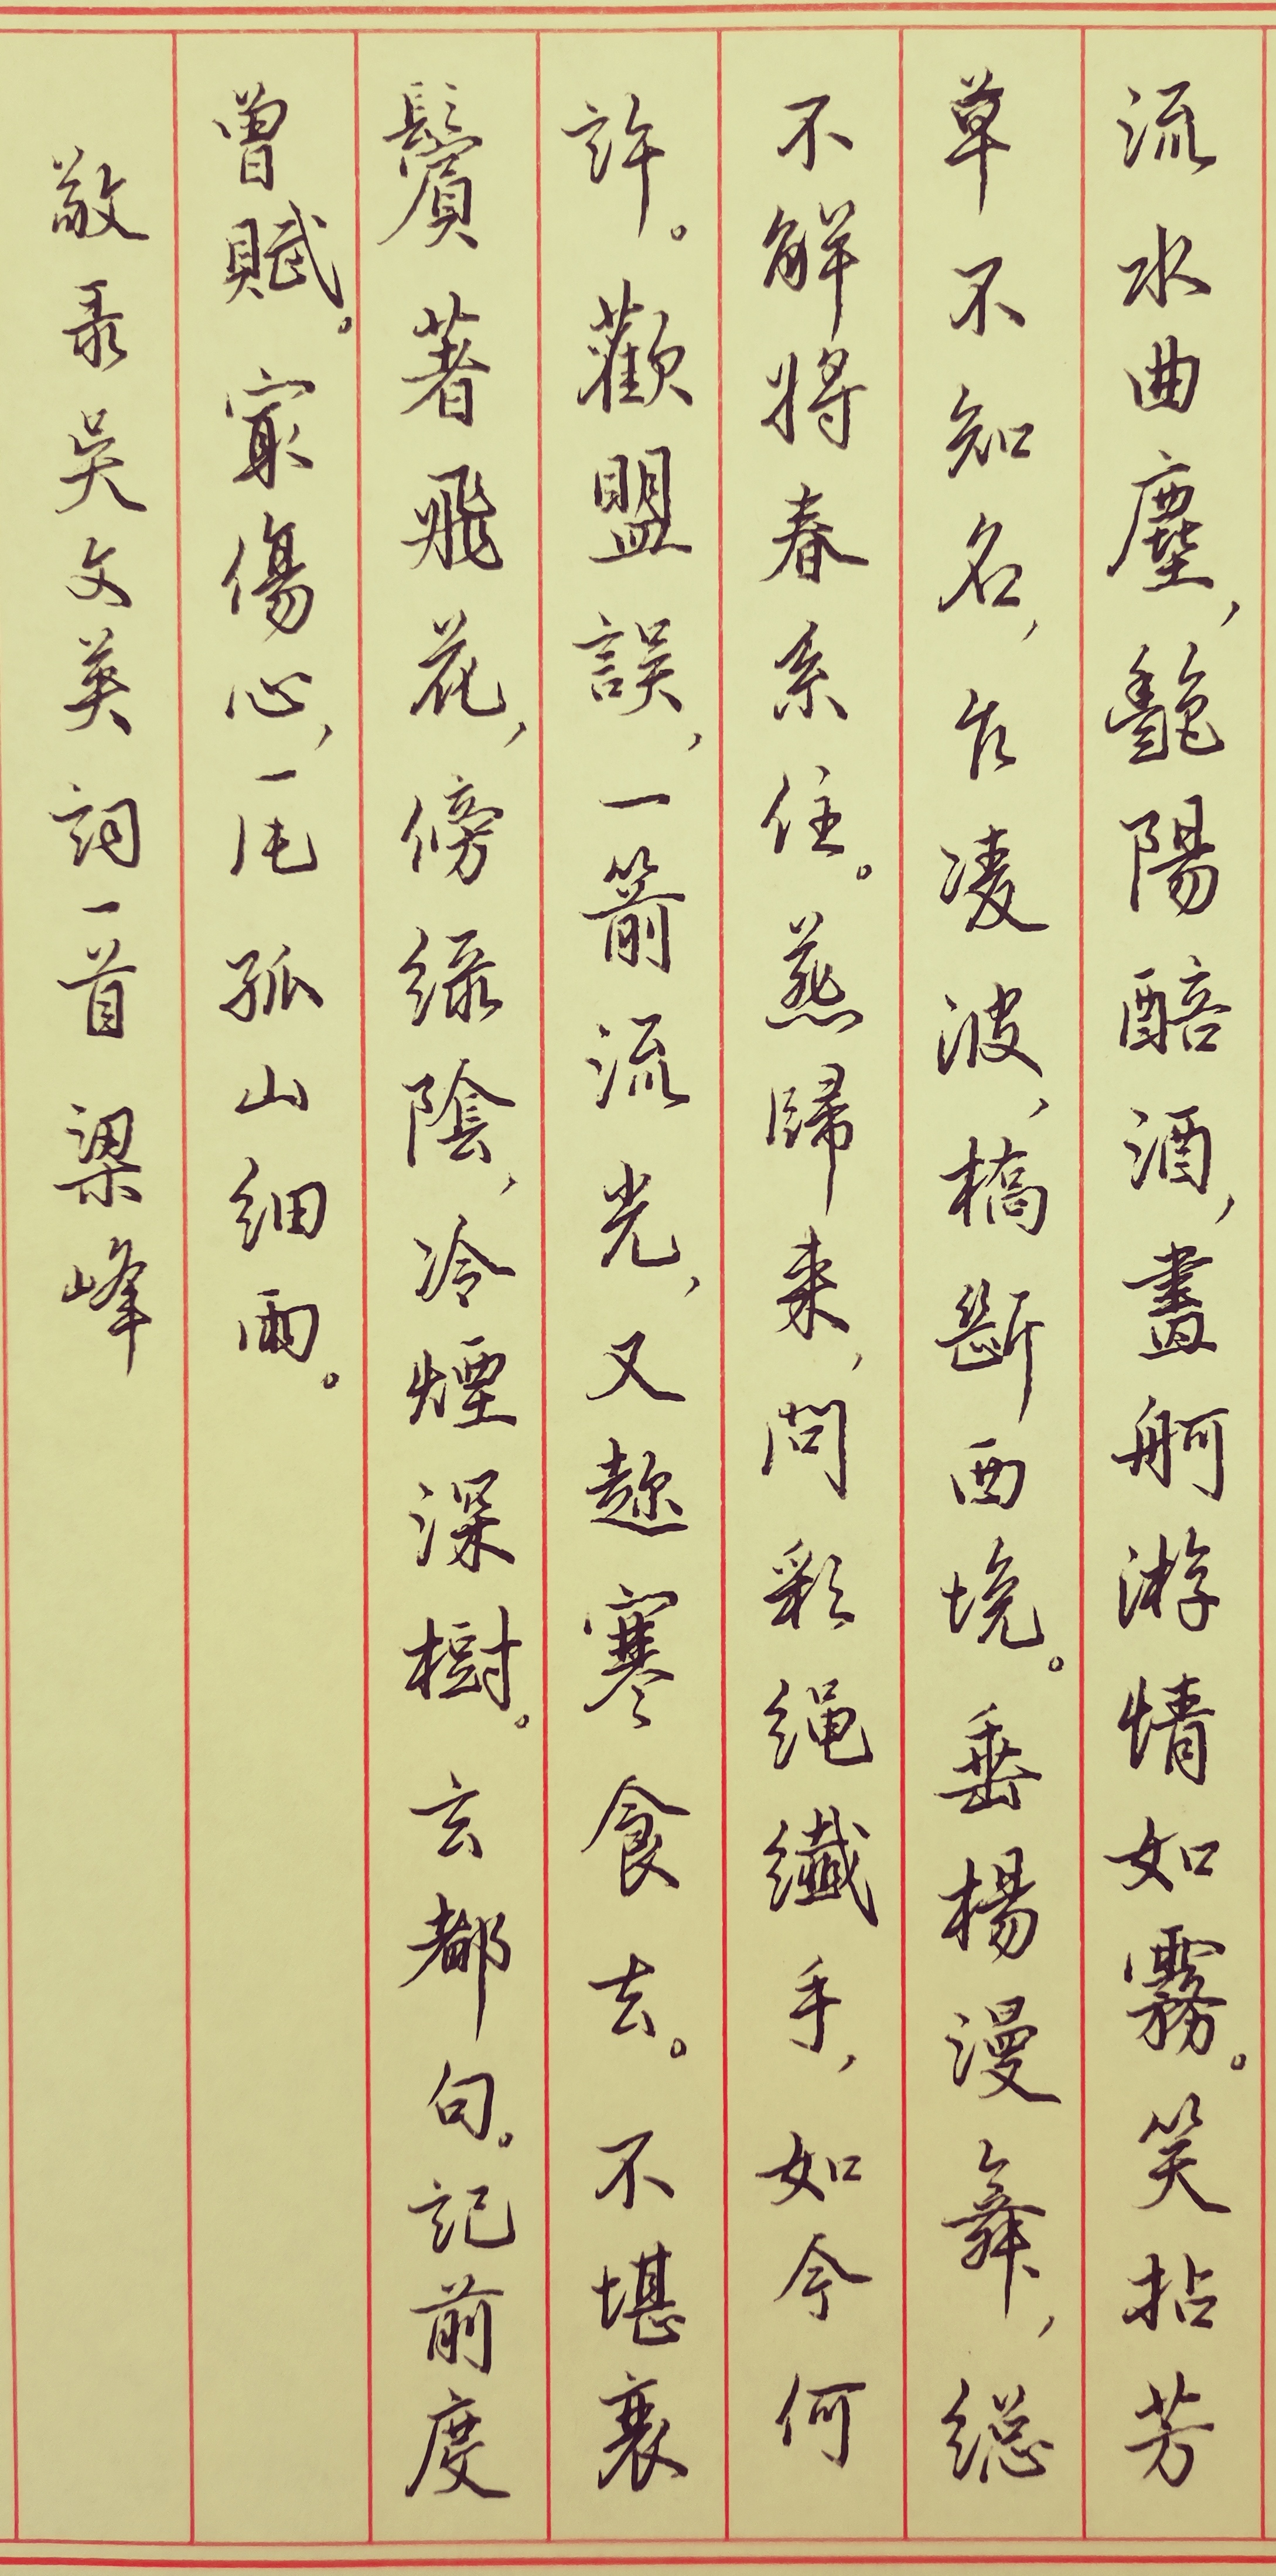 流水曲塵，艷陽醅酒，畫舸游情如霧。笑拈芳
草不知名，乍凌波，橋斷西堍。垂楊漫舞，總
不解將春系住。燕歸來，問彩绳纖手，如今何
許。歡盟誤，一箭流光，又趁寒食去。不堪衰
鬢著飛花，傍綠陰，冷煙深樹。玄都句。記前度
曾賦。寂傷心，一片孤山細雨。
敬录吴文英詞一首 梁峰